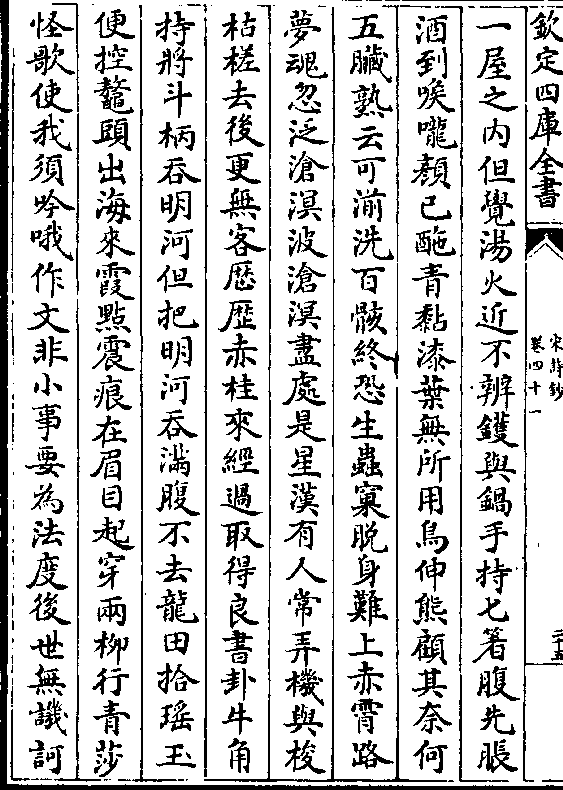 欽定四庫全書
宋詩鈔
卷四十一
二十五
一屋之内但覺湯火近不辨鑊與鍋手持七箸腹先脹
酒到喉嚨顔已酡青黏漆葉無所用鳥伸熊顧其奈何
五臟熟云可湔洗百骸終恐生蟲窠脱身難上赤霄路
夢魂忽泛滄溟波滄溟盡處是星漢有人常弄機與梭
枯槎去後更無客歴歴赤桂來經過取得良書卦牛角
持將斗柄吞明河但把明河吞滿腹不去龍田拾瑶玉
便控鼇頭出海來霞點震痕在眉目起穿兩柳行青莎
怪歌使我須吟哦作文非小事要為法度後世無譏訶